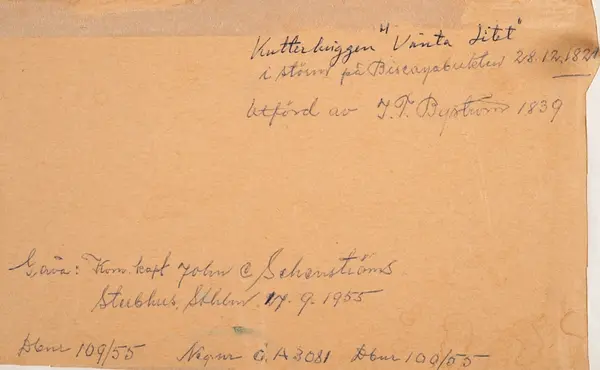 Kutterbriggen "Vänta Litet"
i storm på Biscayabukten 28.12.1821
Utförd av J. T. Byström 1839
Gåva: Kom.kapt John C Schenströms
Sthlm 17.9.1955
Dbnr 109/55 Neg nr Ö.A 3081 Dbnr 109/55